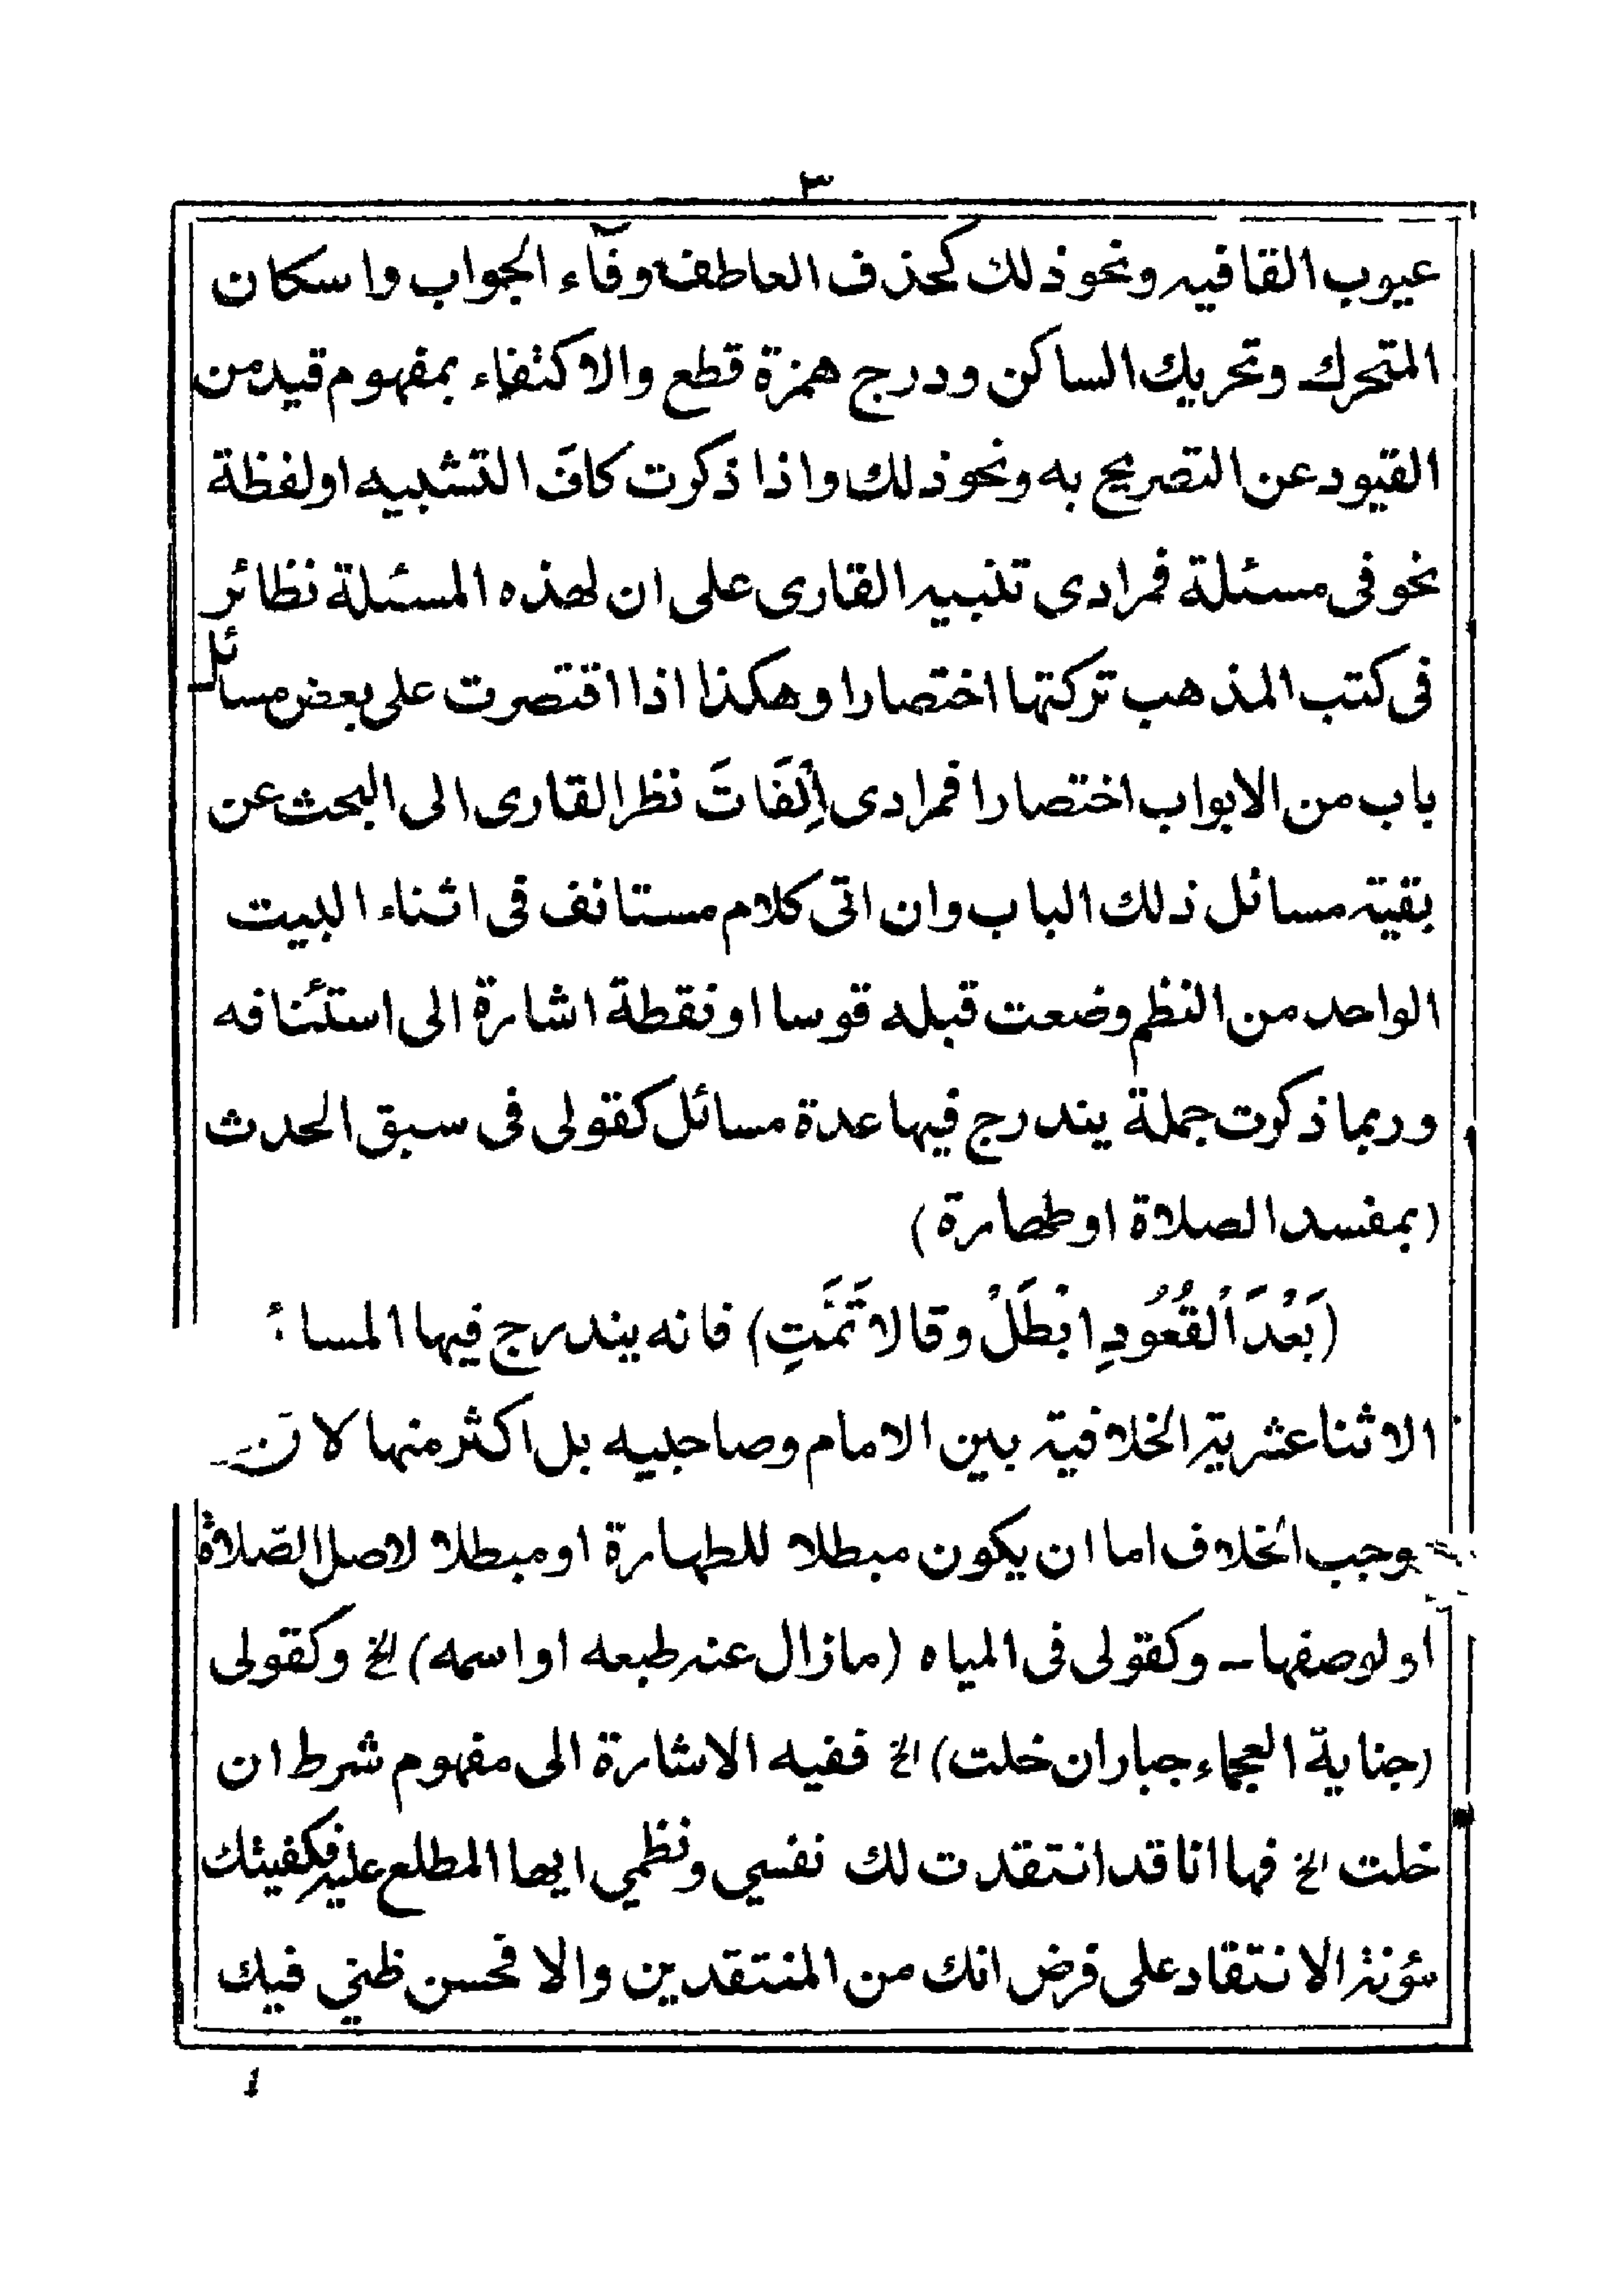 ٣
عيوب القافيه ونحو ذلك كحذف العاطف وفآء الجواب واسكان
المتحرك وتحريك الساكن ودرج همزة قطع والاكتفاء بمفهوم قيد من
القيود عن التصريح به ونحو ذلك واذا ذكرت كاف التشبيه او لفظة
نحو فى مسئلة فمرادى تنبيه القارى على ان لهذه المسئلة نظائر
فى كتب المذهب تركتها اختصارا وهكذا اذا اقتصرت على بعض مسائل
باب من الابواب اختصارا فمرادى اِلْفَاتَ نظر القارى الى البحث عن
بقية مسائل ذلك الباب وان اتى كلام مستانف فى اثناء البيت
الواحد من النظم وضعت قبله قوسا او نقطة اشارة الى استئنافه
وربما ذكرت جملة يندرج فيها عدة مسائل كقولى فى سبق الحدث
(بمفسد الصلاة او طهارة)
(بَعْدَ اْلقُعُودِ ابْطَلْ وقالا تَمَّتِ) فانه يندرج فيها المسائ
الاثنا عشرية الخلافية بين الامام وصاحبيه بل اكثر منها لان
موجب الخلاف اما ان يكون مبطلا للطهارة او مبطلا لاصل الصّلاة
او لوصفها ـ وكقولى فى المياه (مازال عنه طبعه او اسمه) الخ وكقولى
(جناية العجماء جبار ان خلت) الخ ففيه الاشارة الى مفهوم شرط ان
خلت الخ فها انا قد انتقدت لك نفسي ونظمي ايها المطلع عليه فكفيتك
مؤنة الانتقاد على فرض انك من المنتقدين والا فحسن ظني فيك